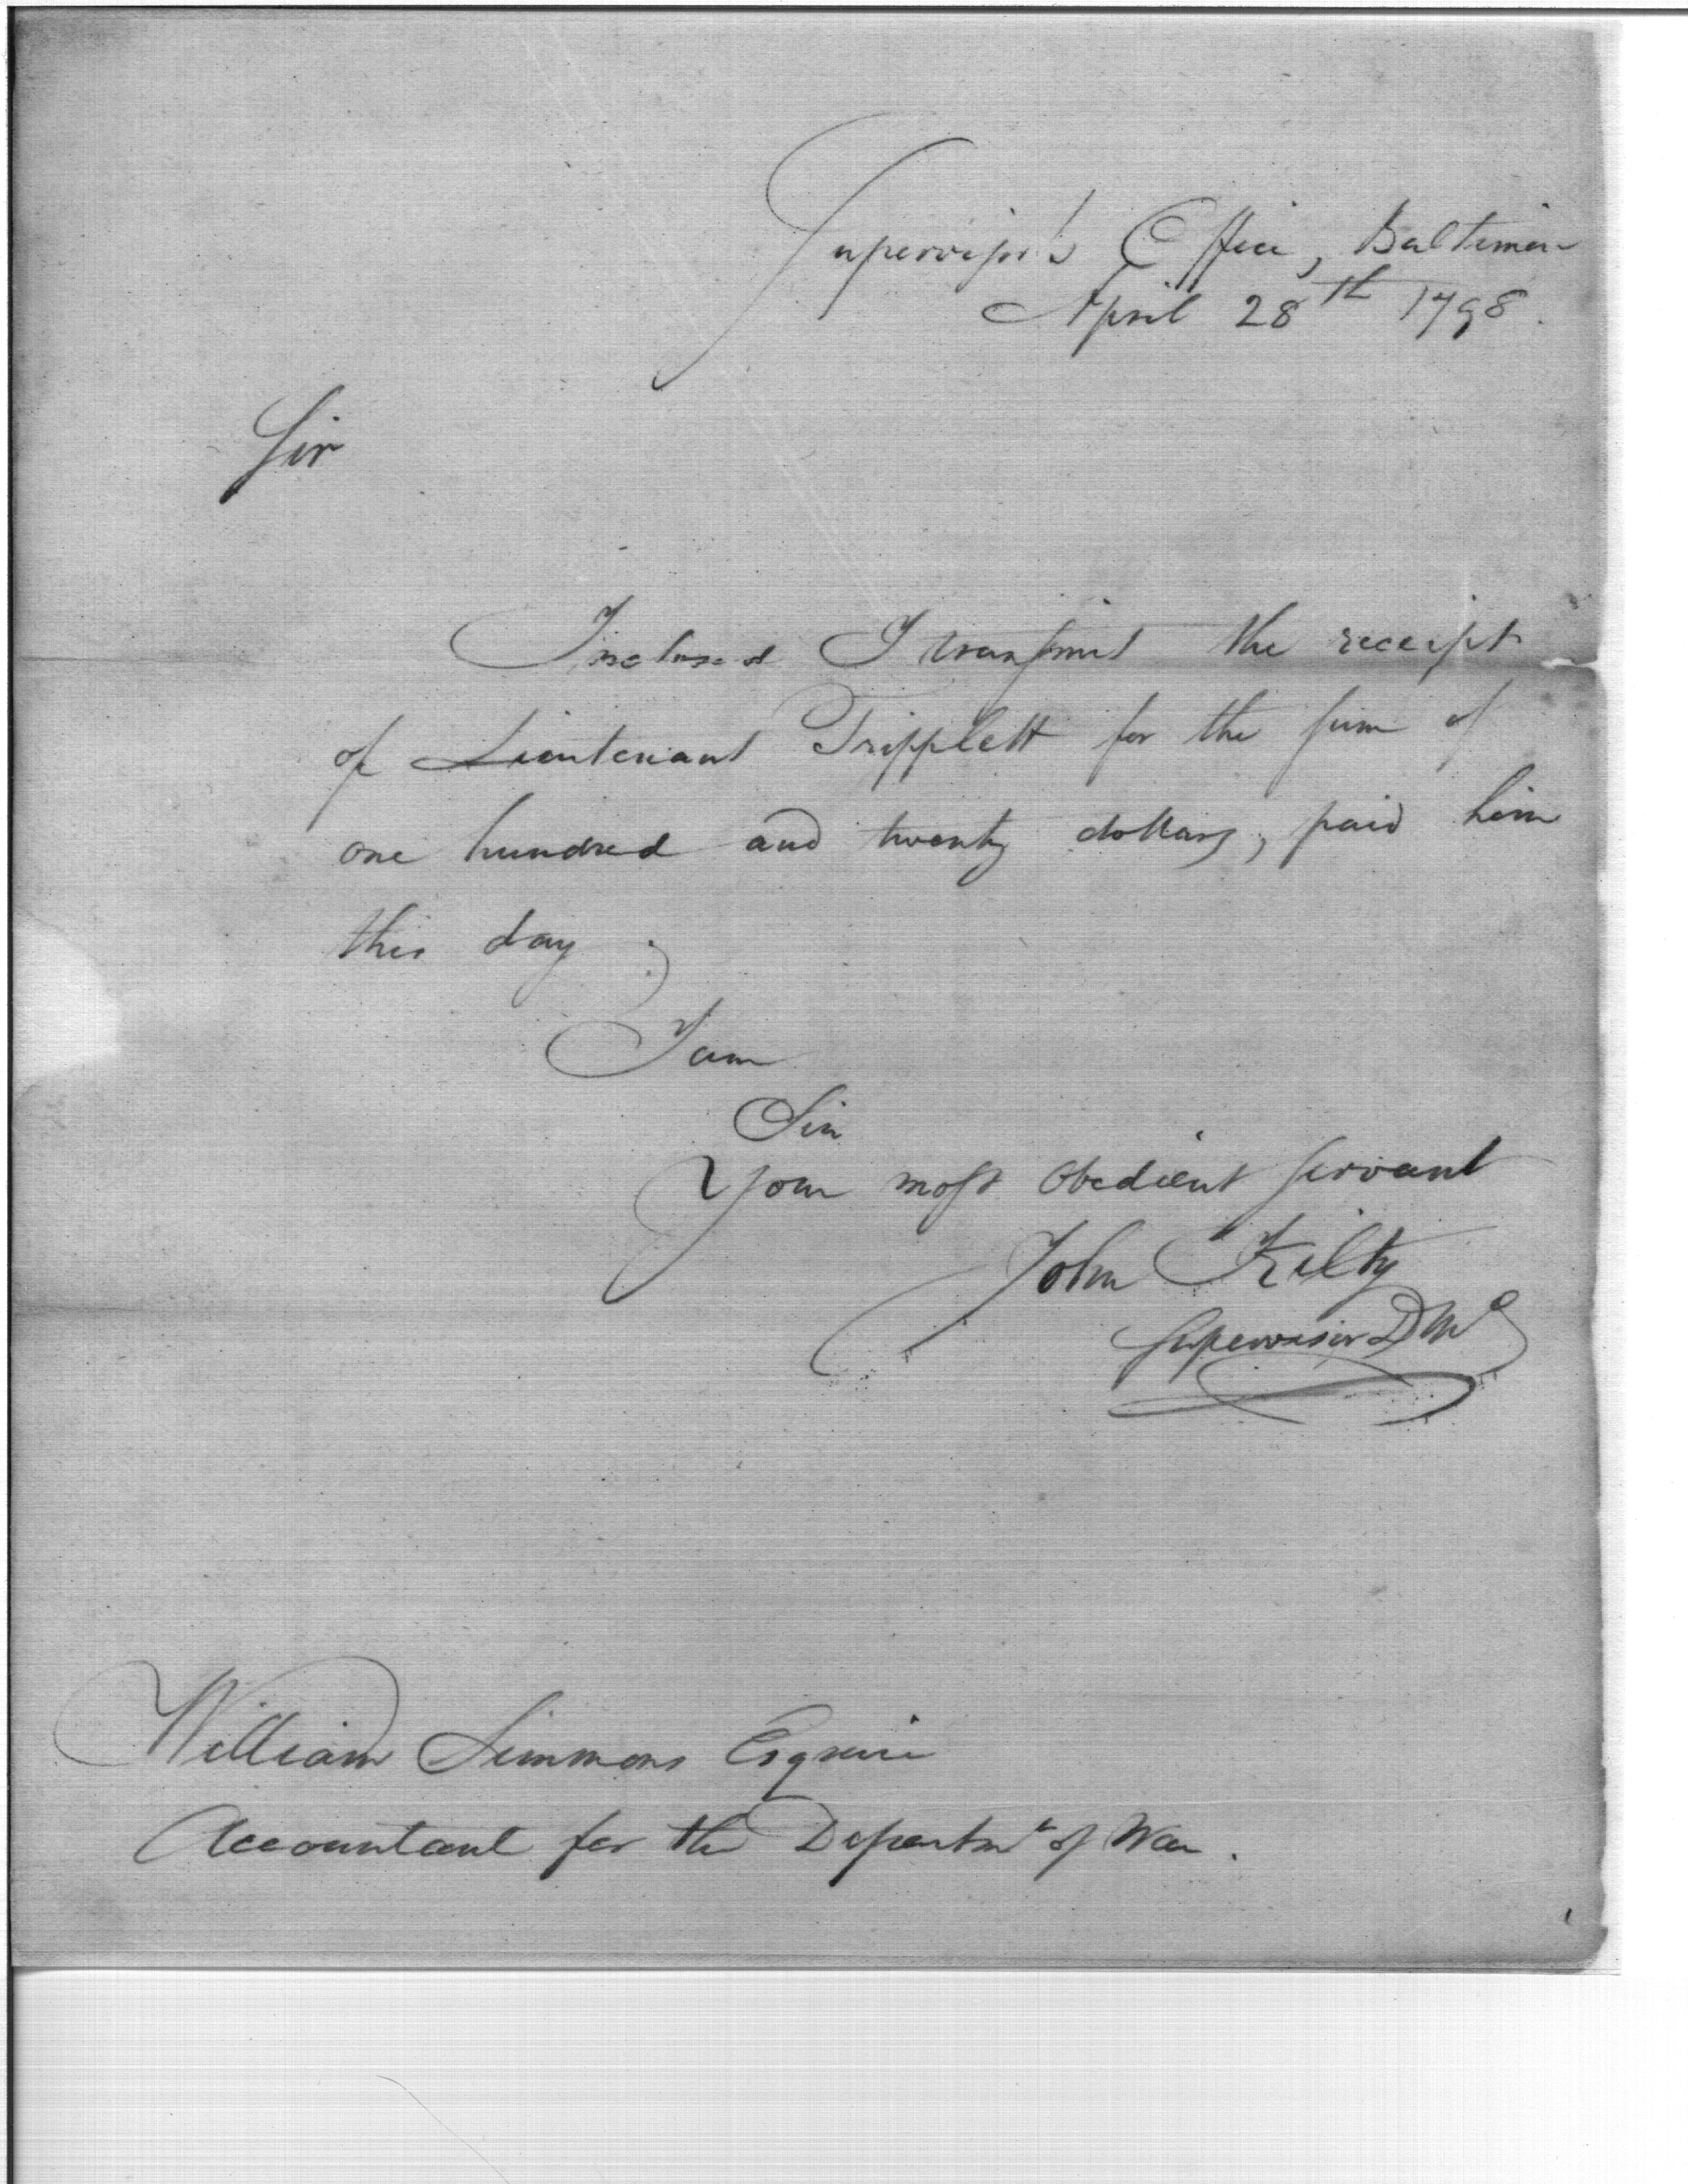 Supervisor's Office, Baltimore
April 28th 1798.
Sir
Inclosed I transmit the receipt
of Lieutenant Tripplett for the sum of
one hundred and twenty dollars, paid him
this day.
I am
Sir
Your most obedient servant
John Kilty
Supervisor D Md
William Simmons Esquire
Accountant for the Departmt of War.